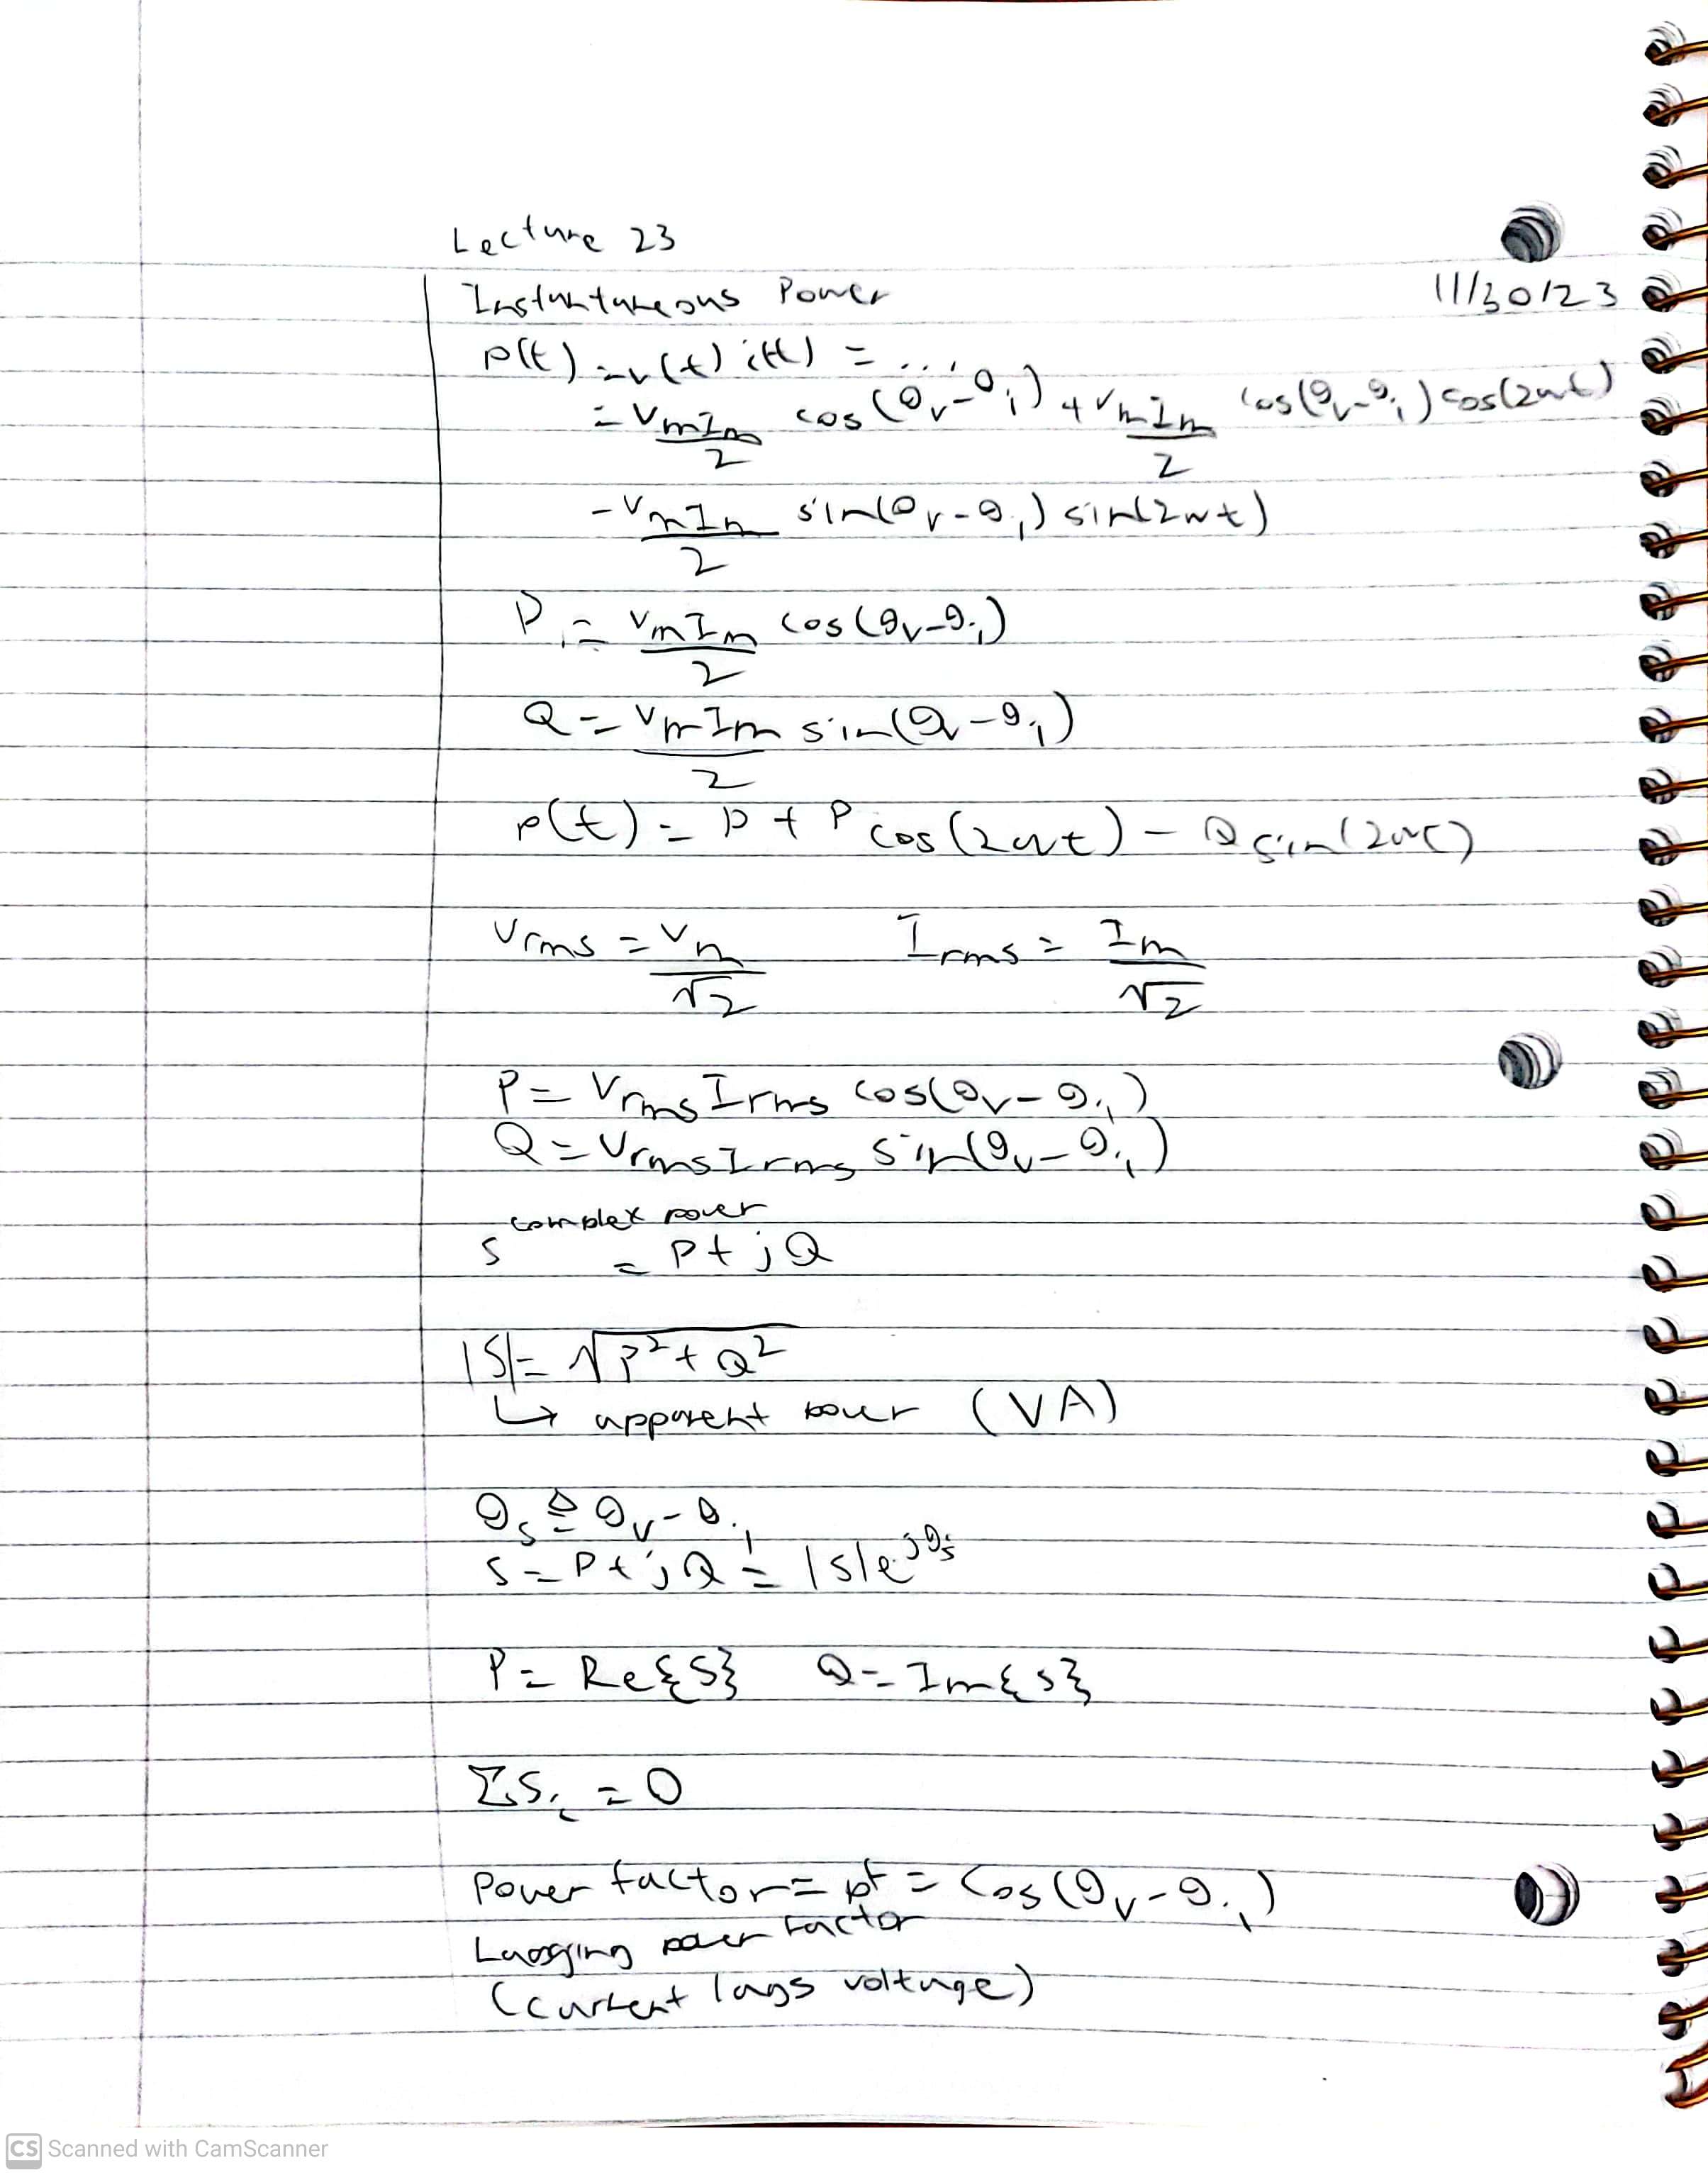 Lecture 23
Instantaneous Power
11/30/23
p(t) = v(t) i(t) = ....
= VmIm/2 cos(θv-θi) + VmIm/2 cos(θv-θi) cos(2ωt)
- VmIm/2 sin(θv-θi) sin(2ωt)
P = VmIm/2 cos(θv-θi)
Q = VmIm/2 sin(θv-θi)
p(t) = P + P cos(2ωt) - Q sin(2ωt)
Vrms = Vm/√2 Irms = Im/√2
P = Vrms Irms cos(θv-θi)
Q = Vrms Irms sin(θv-θi)
complex power
S = P + jQ
|S| = √P²+Q²
↳ apparent power (VA)
θs ≜ θv-θi
S = P + jQ = |S|e^jθs
P = Re{S} Q = Im{S}
ΣSi = 0
Power factor = pf = cos(θv-θi)
Lagging power factor
(current lags voltage)
CS Scanned with CamScanner